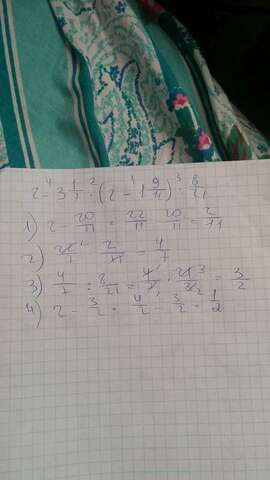 2 -⁴ 3 1/7 ·² (2 -¹ 1 9/11) :³ 8/21
1) 2 - 20/11 = 22/11 - 20/11 = 2/11
2) 22/7 · 2/11 = 4/7
3) 4/7 : 8/21 = 4/7 · 21/8 = 3/2
4) 2 - 3/2 = 4/2 - 3/2 = 1/2